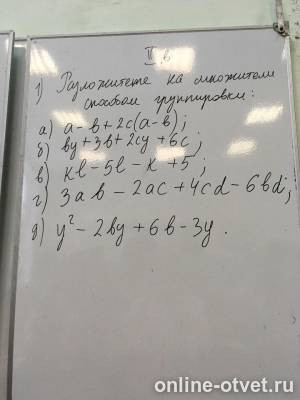 II в
1) Разложите на множители
способом группировки:
а) a - в + 2с(a - в);
б) вy + 3в + 2cy + 6c;
в) кl - 5l - к + 5;
г) 3ав - 2ас + 4cd - 6вd;
д) y² - 2вy + 6в - 3y.
online-otvet.ru